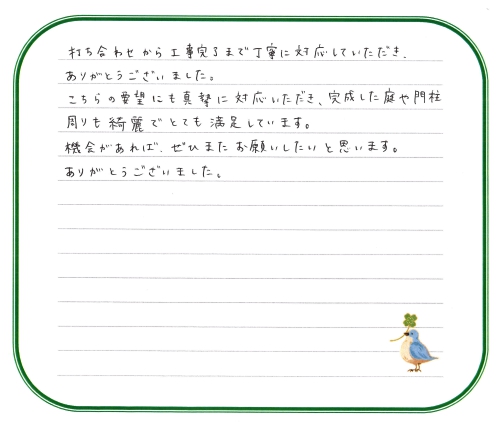 打ち合わせから工事完了まで丁寧に対応していただき、
ありがとうございました。
こちらの要望にも真摯に対応いただき、完成した庭や門柱
周りも綺麗でとても満足しています。
機会があれば、ぜひまたお願いしたいと思います。
ありがとうございました。